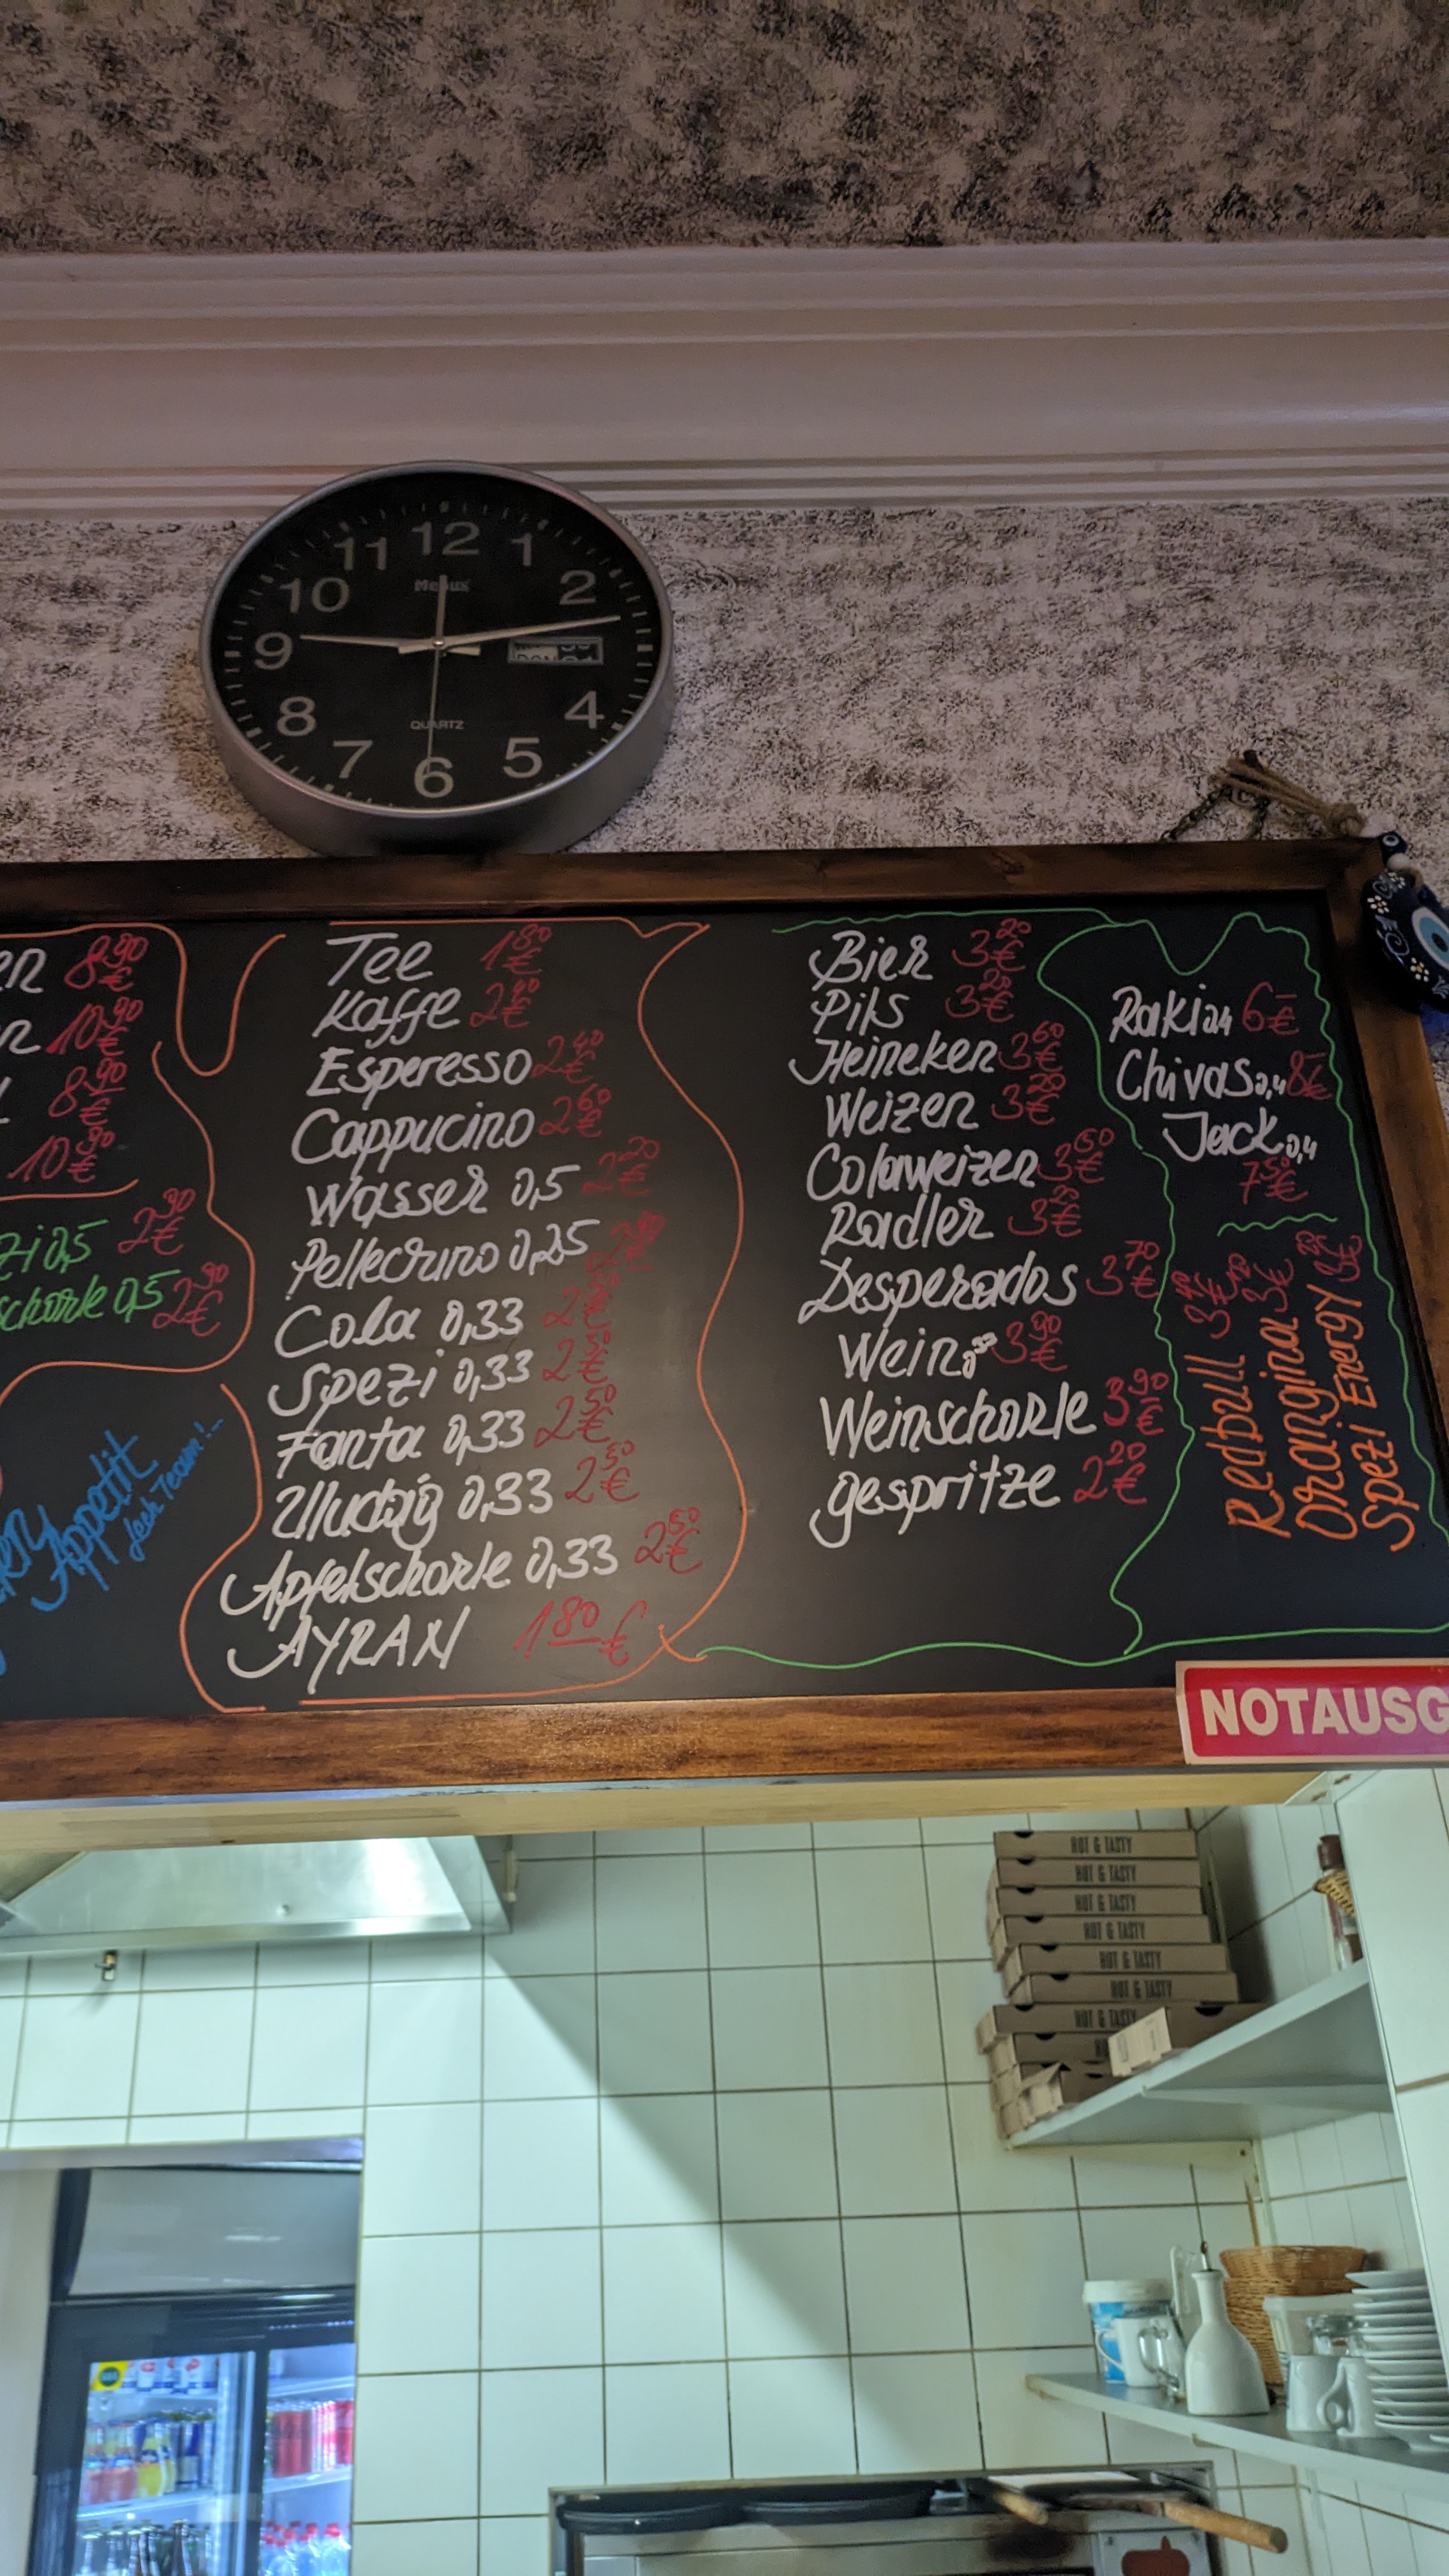 12
1
2
4
5
6
7
8
9
10
11
QUARTZ
8,90 €
10,90 €
8,90 €
10,90 €
0,5 2,90 €
schorle 0,5 2,90 €
Appetit
Team!
Tee 1,80 €
Kaffe
Esperesso 2,40 €
Cappucino 2,60 €
Wasser 0,5 2,20 €
0,25
Cola 0,33 2,50 €
Spezi 0,33 2,50 €
Fanta 0,33 2,50 €
Uludağ 0,33 2,50 €
Apfelschorle 0,33 2,50 €
AYRAN 1,80 €
Bier 3,20 €
Pils 3,20 €
Heineken 3,60 €
Weizen 3,20 €
Colaweizen 3,50 €
Radler 3,20 €
Desperados 3,70 €
Wein 3,90 €
Weinschorle 3,90 €
gespritze 2,20 €
Raki 6,- €
Chivas 8,- €
Jack 0,4
7,50 €
Redbull
Orangina
Spezi Energy
NOTAUSG
HOT & TASTY
HOT & TASTY
HOT & TASTY
HOT & TASTY
HOT & TASTY
HOT & TASTY
HOT & TASTY